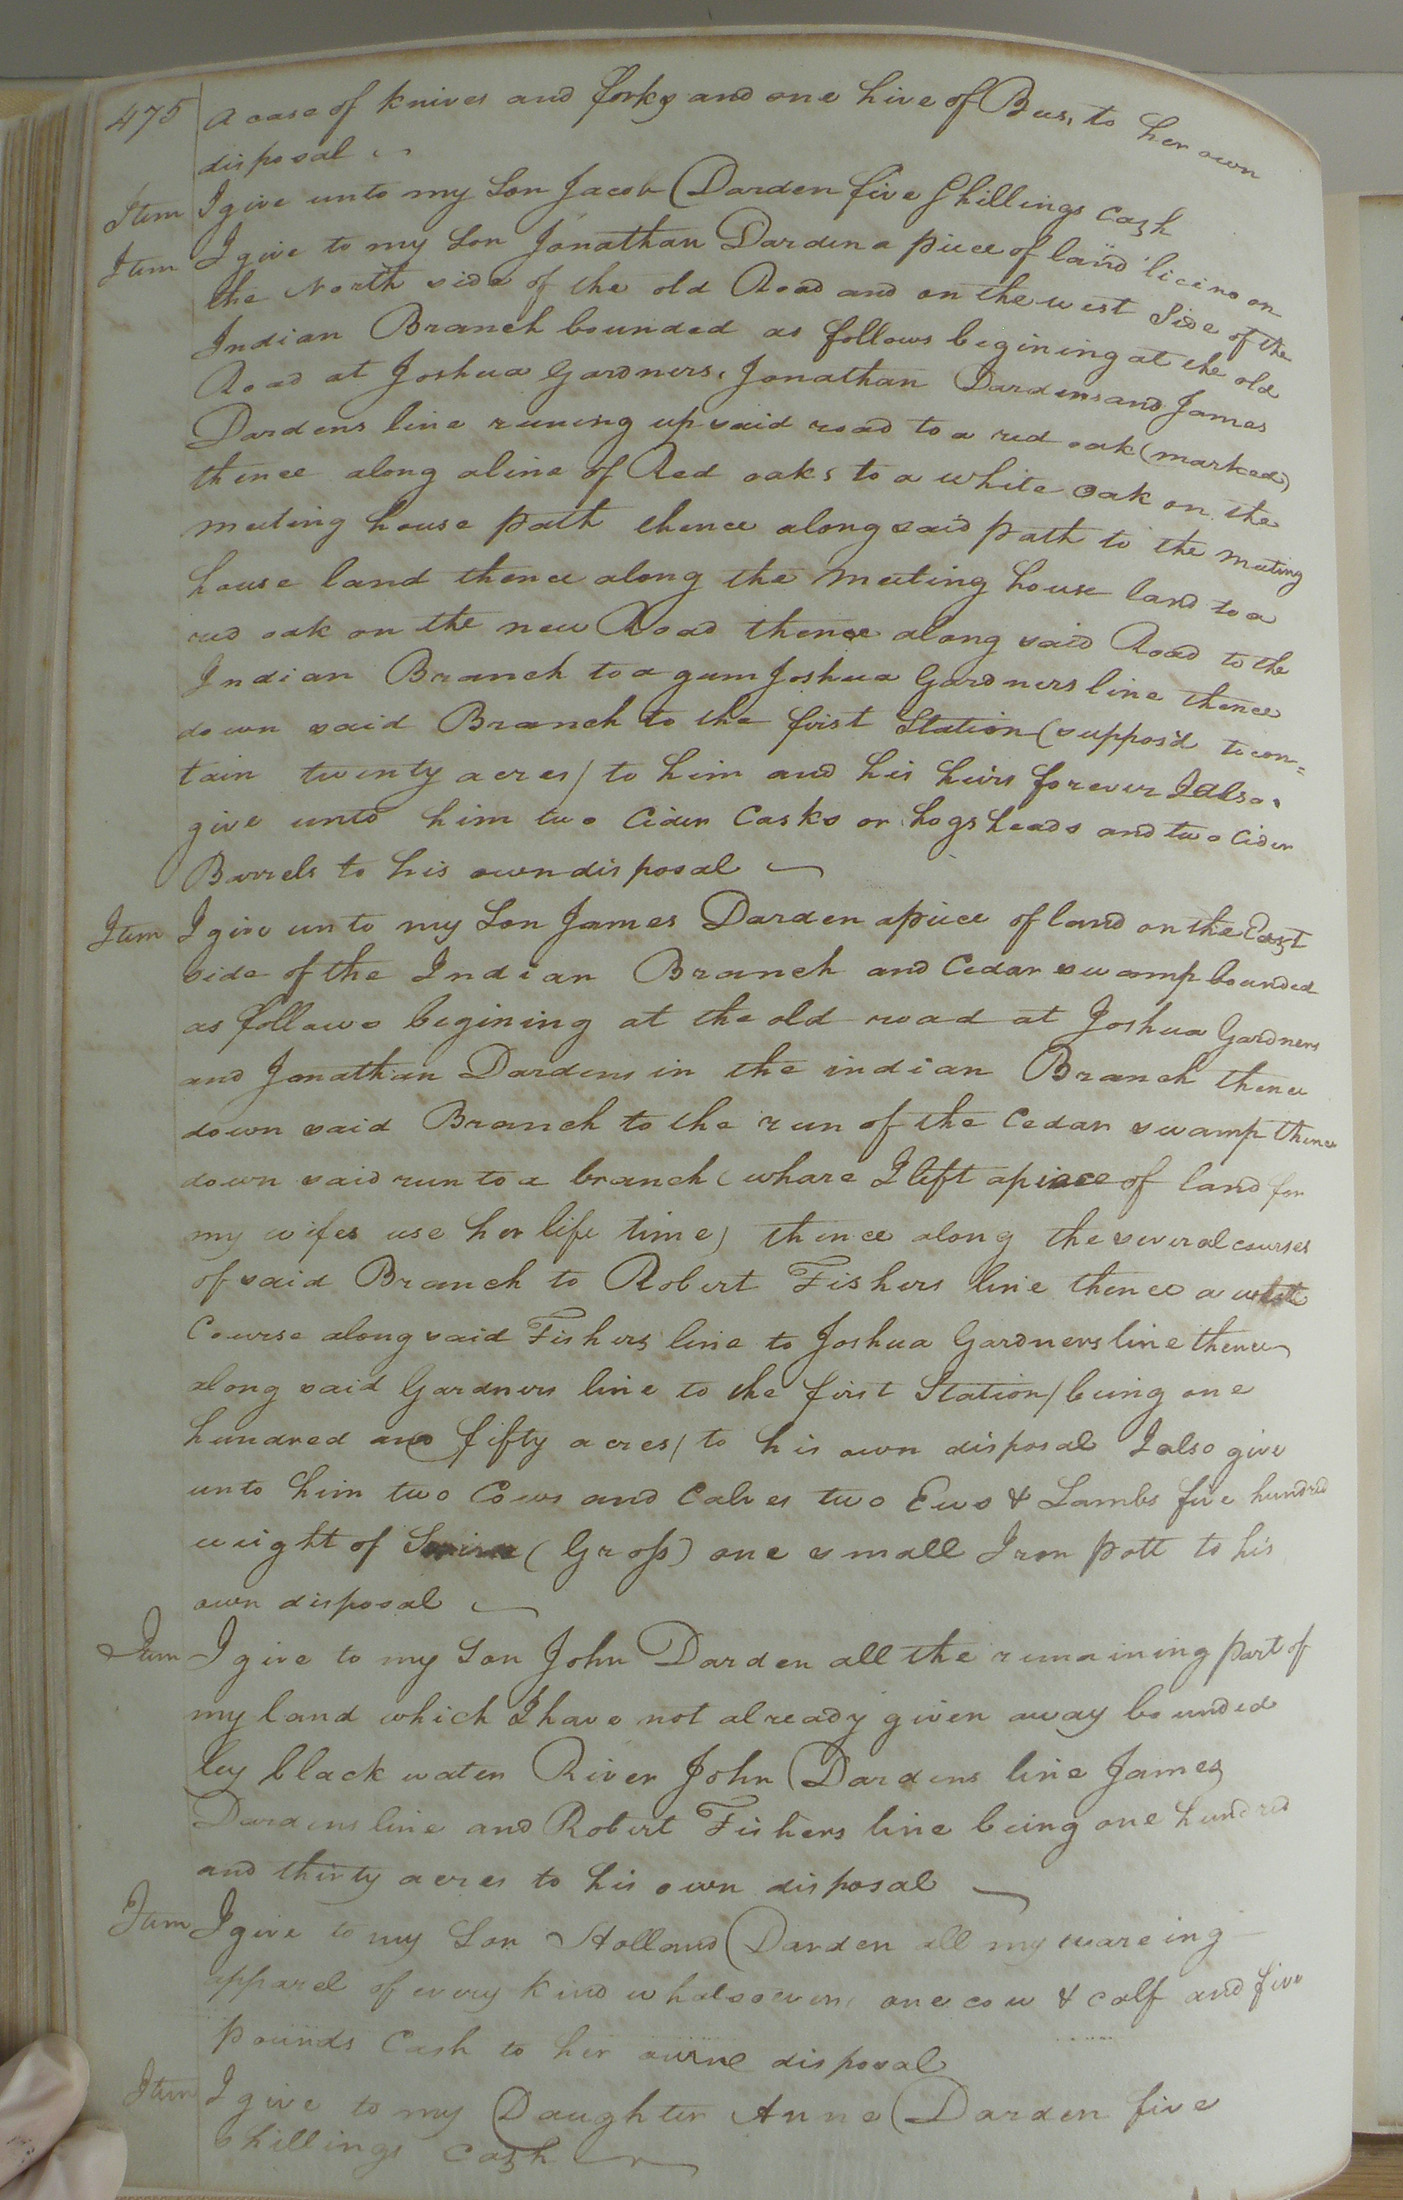 475 a case of knives and forks and one hive of Bees, to her own
disposal
Item I give unto my Son Jacob Darden five Shillings Cash
Item I give to my Son Jonathan Darden a piece of land on
the North side of the old Road and on the west Side of the
Indian Branch bounded as follows begining at the old
Road at Joshua Gardners, Jonathan Dardens and James
Dardens line runing up said road to a red oak (marked)
thence along a line of Red oaks to a white oak on the
meeting house path thence along said path to the meeting
house land thence along the meeting house land to a
red oak on the new Road thence along said Road to the
Indian Branch to a gum Joshua Gardners line thence
down said Branch to the first Station (suppos'd to con=
tain twenty acres) to him and his heirs forever I also
give unto him two Cider Casks or hogsheads and two Cider
Barrels to his own disposal
Item I give unto my Son James Darden a piece of land on the East
side of the Indian Branch and Cedar swamp bounded
as follows begining at the old road at Joshua Gardners
and Jonathan Dardens in the indian Branch thence
down said Branch to the run of the Cedar swamp thence
down said run to a branch (whare I left a piece of land for
my wifes use her life time) thence along the several courses
of said Branch to Robert Fishers line thence a
Course along said Fishers line to Joshua Gardners line thence
along said Gardners line to the first Station (being one
hundred and fifty acres) to his own disposal I also give
unto him two Cows and Calves two Ews & Lambs five hundred
weight of (Gross) one small Iron pott to his
own disposal
Item I give to my Son John Darden all the remaining part of
my land which I have not already given away bounded
by black water River John Dardens line James
Dardens line and Robert Fishers line being one hundred
and thirty acres to his own disposal
Item I give to my Son Holland Darden all my wareing
apparel of every kind whatsoever, one cow & calf and five
pounds Cash to his owne disposal
Item I give to my Daughter Anne Darden five
shillings Cash